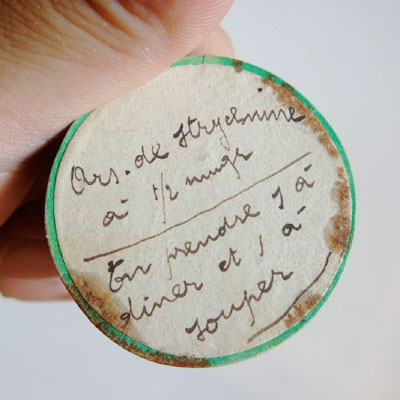 Ars. de strychnine
à 1/2 mmgr
En prendre 1 à
diner et 1 à
souper